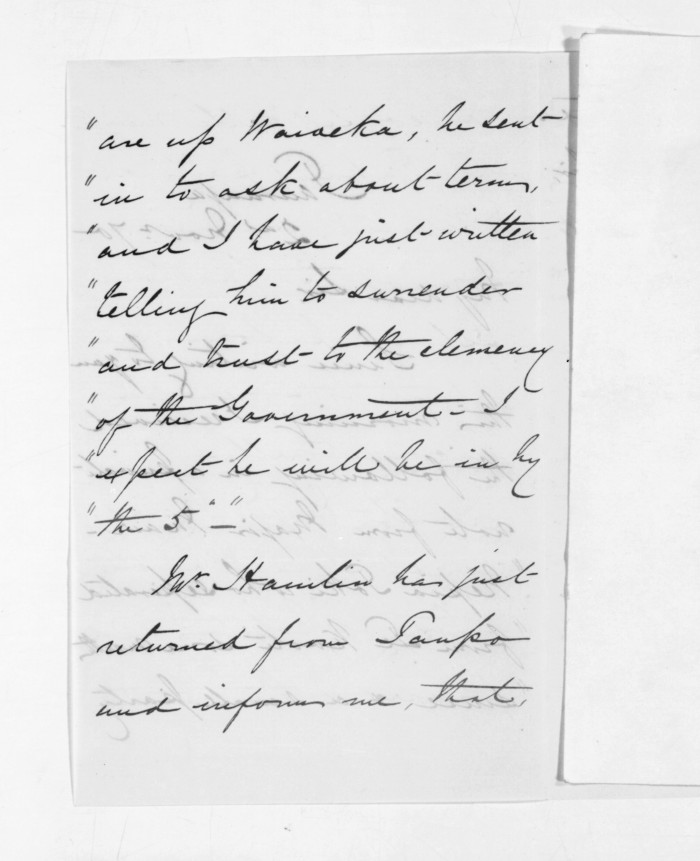 "are up Waioeka, he sent
"in to ask about terms,
"and I have just written
"telling him to surrender
"and trust to the clemency
"of the Government – I
"expect he will be in by
"the 5" – "
Mr. Hamlin has just
returned from Taupo
and informs me, that,